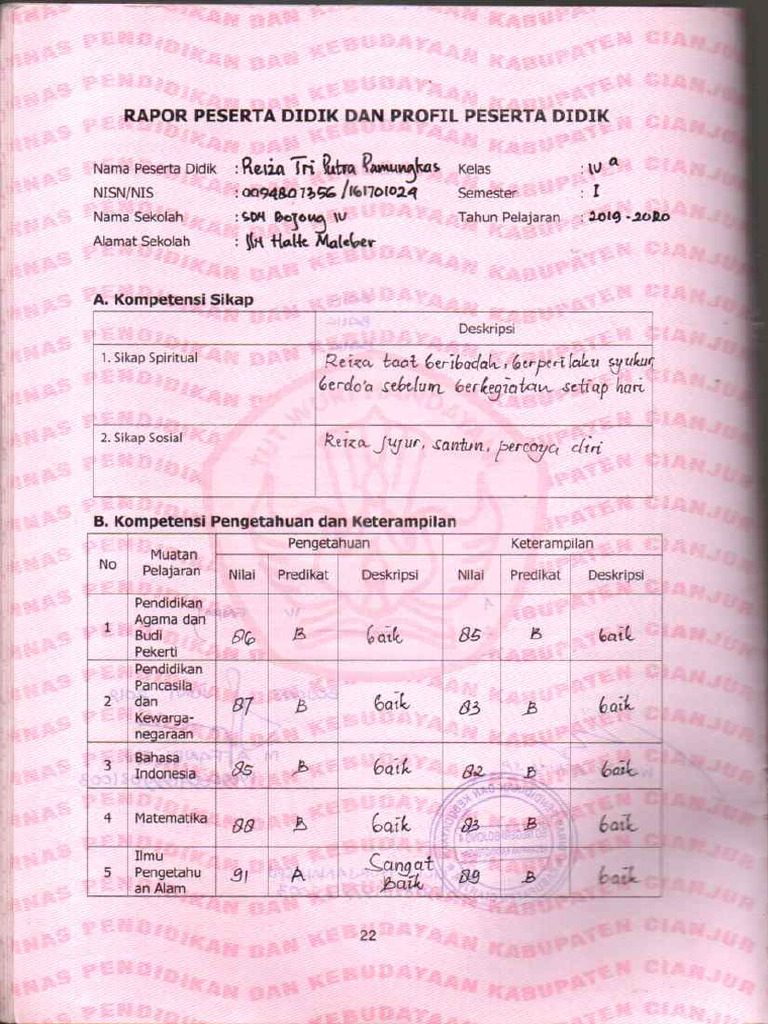 RAPOR PESERTA DIDIK DAN PROFIL PESERTA DIDIK
Nama Peserta Didik : Reiza Tri Putra Pamungkas Kelas : IV a
NISN/NIS : 0094807356/161701024 Semester : I
Nama Sekolah : SDN Bojong IV Tahun Pelajaran : 2019-2020
Alamat Sekolah : Halte Maleber
A. Kompetensi Sikap
Deskripsi
1. Sikap Spiritual Reiza taat beribadah, berperilaku syukur,
berdo'a sebelum berkegiatan setiap hari
2. Sikap Sosial Reiza jujur, santun, percaya diri
B. Kompetensi Pengetahuan dan Keterampilan
No Muatan Pelajaran Pengetahuan Keterampilan
Nilai Predikat Deskripsi Nilai Predikat Deskripsi
1 Pendidikan
Agama dan
Budi
Pekerti 86 B baik 85 B baik
2 Pendidikan
Pancasila
dan
Kewarga-
negaraan 87 B baik 83 B baik
3 Bahasa
Indonesia 85 B baik 82 B baik
4 Matematika 88 B baik 83 B baik
5 Ilmu
Pengetahu
an Alam 91 A Sangat Baik 89 B baik
22